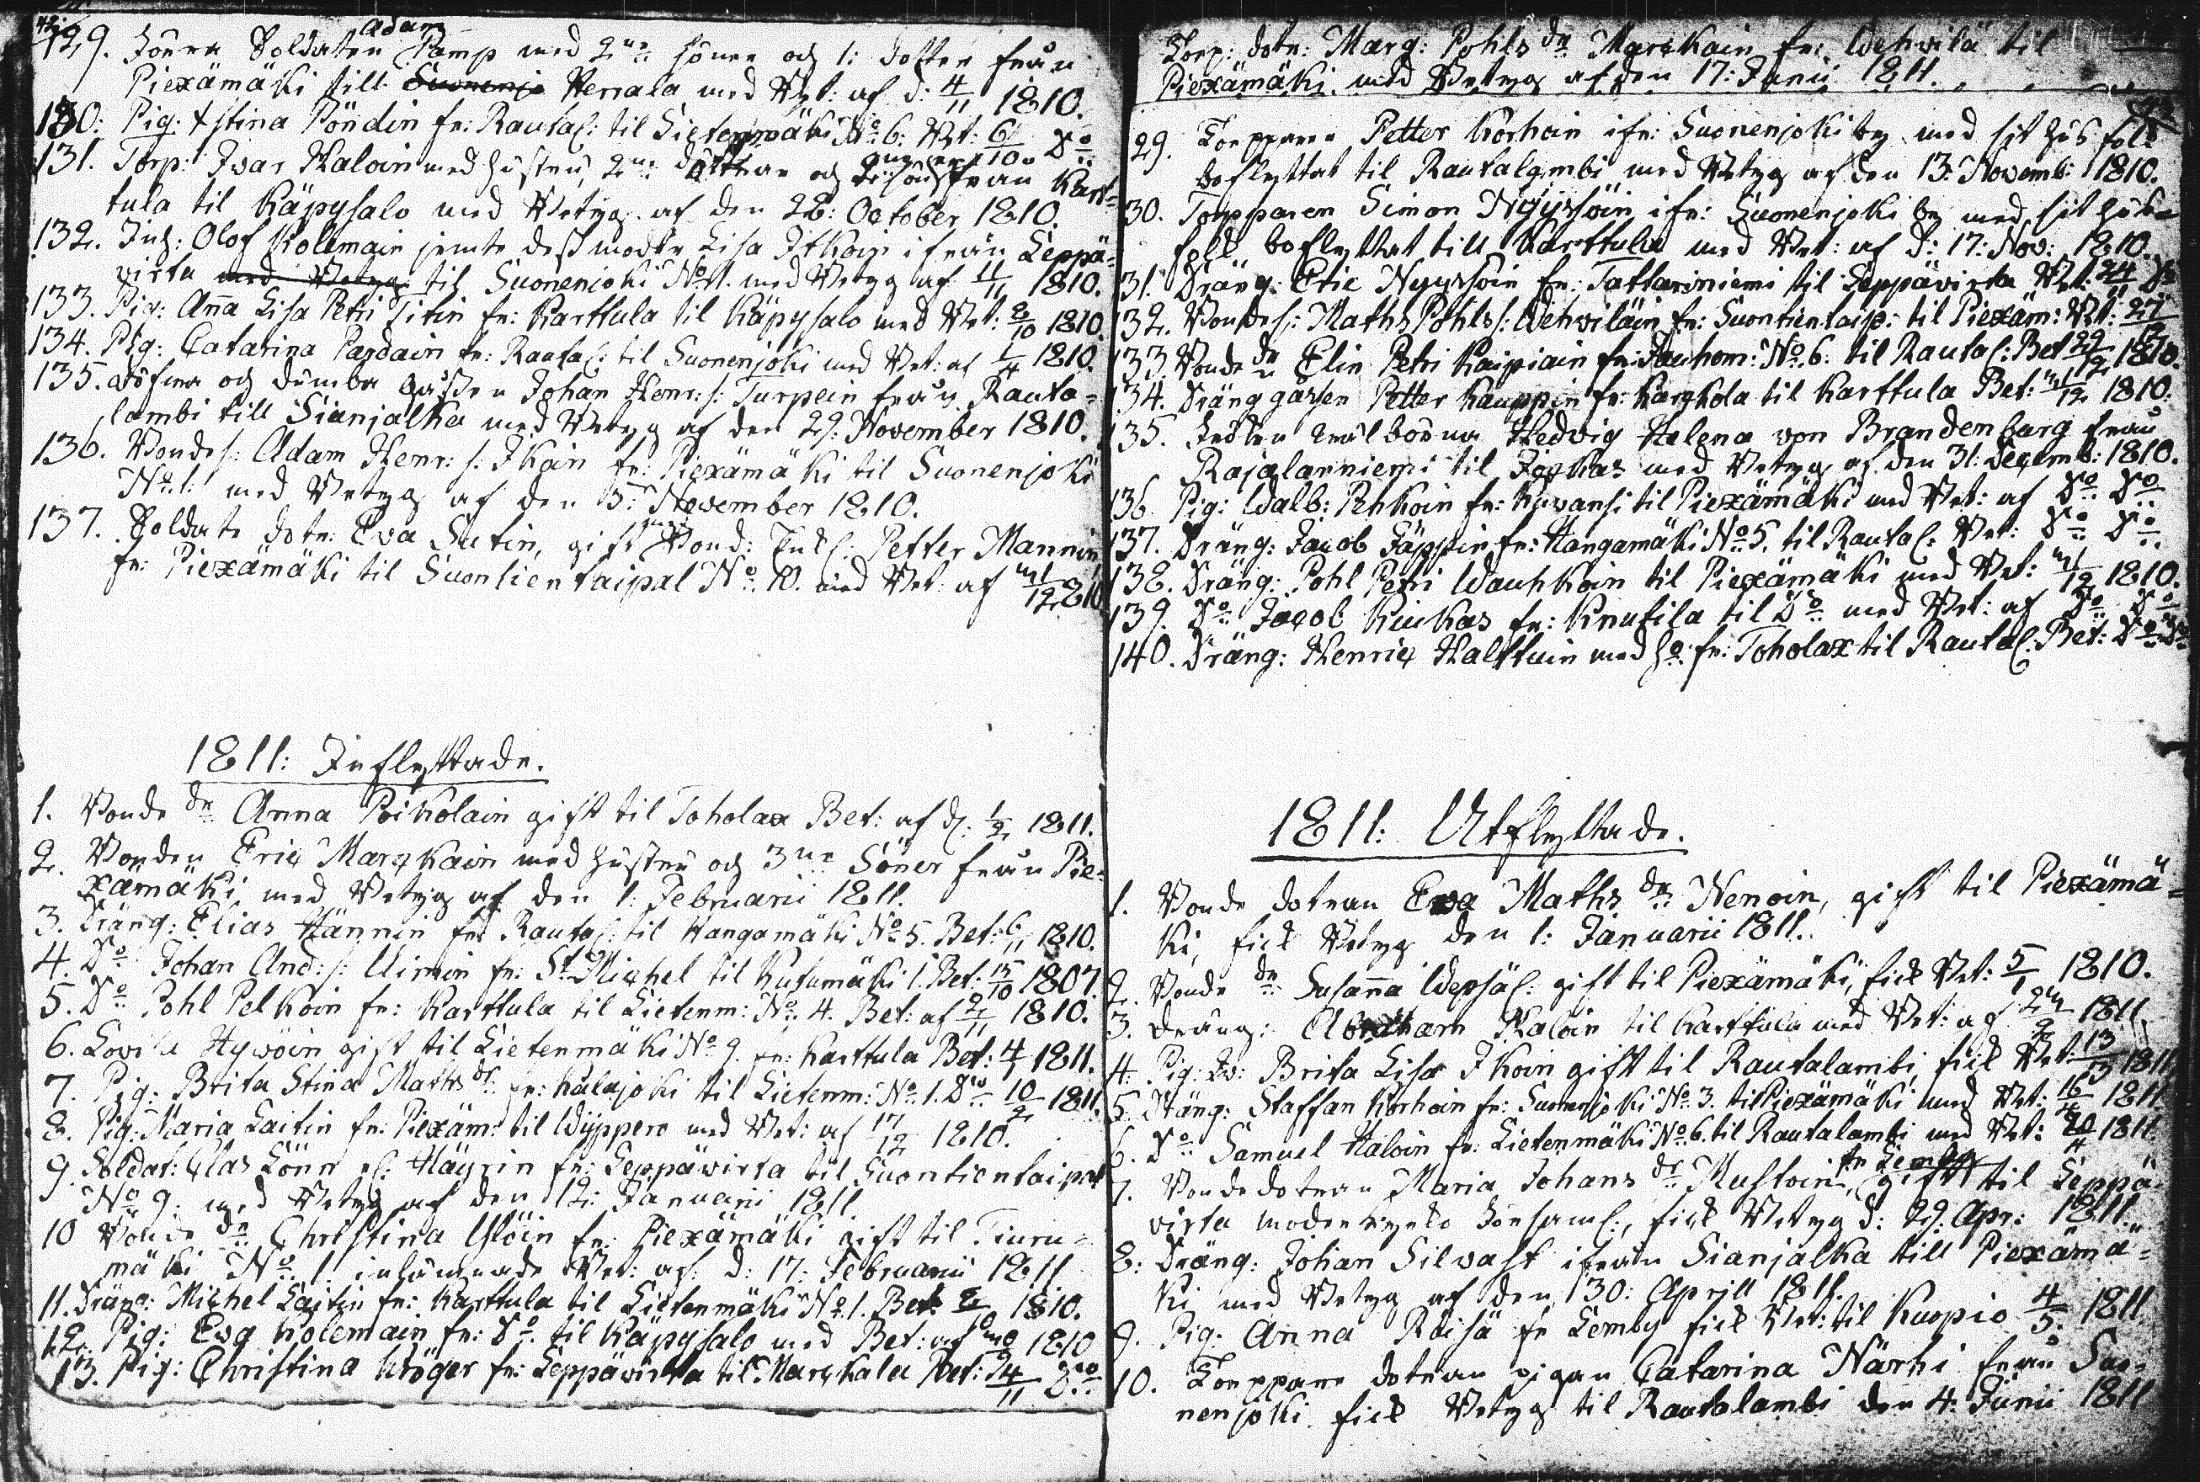 129. Soldaten Adam Pamp med 2ne söner och 1: dotter från
Piexämäki till Herrala med Bet: af d: 4/11 1810.
130: Pig: Stina Pöndin fr: Rautal: til Lietenmäki No 6: Bet: 6/10 Do
131. Torp: Ivar Haloin med hustru, 2ne döttrar och från Kart=
tula til Käpysalo med Betyg af den 28: October 1810.
132. Inh: Olof Kolemain jemte dess moder Lisa Itkoin ifrån Leppä=
virta med Betyg til Suonenjoki No 1. med Betyg af 11/11 1810.
133. Pig: Anna Lisa Petri Titin fr: Karttula til Käpysalo med Bet: 8/10 1810.
134. Pig: Catarina Pardain fr: Rautal: til Suonenjoki med Bet: af 1/4 1810.
135. döfva och dumba gossen Johan Henr: s: Turpein från Rauta=
lambi till Sianjalka med Betyg af den 29: November 1810.
136. Bondes: Adam Henr: s: Ikoin fr: Piexämäki til Suonenjoki
No. 1: med Betyg af den 3: November 1810.
137. Soldate dotr: Eva Sutin, gift Bond: Petter Mannin
fr: Piexämäki til Suontientaipal No 10. med Bet: af 12 1810
1811: Inflyttade.
1. Bonde dr Anna Poikolain gift til Toholax Bet: af d: 1/2 1811.
2. Bonden Eric Marckain med hustru och 3ne Söner från Pie=
xämäki, med Betyg af den 1: Februarii 1811.
3. Dräng: Elias Hännin fr: Rautal: til Hangamäki No 5. Bet: 6/11 1810.
4. Do Johan And: s: Uimin fr: St Michel til Kutumäki 1. Bet: 15/10 1807.
5. Do Pohl Pelkoin fr: Karttula til Lietenm: No 4. Bet: af 2/11 1810.
6. Lovisa Hyvöin gift til Lietenmäki No 9. fr: Karttula Bet: 4/1 1811.
7. Pig: Brita Stina Mathsdr fr: Kalajoki til Lietenm: No 1. Do 10/2 1811.
8. Pig: Maria Laitin fr: Piexäm: til Wyppero med Bet: af 17/12 1810.
9. Soldat: Clas Lönn el: Häyrin fr: Leppäwirta til Suontientaipal
No 9: med Betyg af den 12: Januarii 1811.
10 Bonde dr Christina Ylöin fr: Piexämäki gift til Tiuru=
mäki No 1: inlämnade Bet: af: d: 17: Februarii 1811
11. Dräng: Michel Laitin fr: Karttula til Lietenmäki No 1. Bet: 1810.
12. Pig: Eva Kolemain fr: Do til Käpysalo med Bet: af 1810
13. Pig: Christina Kröger fr: Leppävirta til Marckala Bet: 24/11 Do
Torp: dotr: Marg: Pohlsdr Marckain fr: Wehvilä til
Piexämäki med Betyg af den 17: Junii 1811.
29. Torpparen Petter Korhoin ifr: Suonenjoki by med sit husfolk
boflyttat til Rautalambi med Betyg af den 13: Novemb: 1810.
30. Torpparen Simon Nyyssöin ifr: Suonenjoki by med sit hus=
folk boflyttat till Karttula med Bet: af d: 17: Nov: 1810.
31. Dräng: Eric Nyyssöin fr: Tattarinniemi til Leppävirta Bet: 24/11 Do
132. Bondes: Maths Pohls s: Wehviläin fr: Suontientaip: til Piexäm: Bet: 27
133. Bonde dr Elin Petri Kaipiain fr: No. 6: til Rautal: Bet 22/12 1810.
134. Dränggåssen Petter Kauppin fr: Karkkola til Karttula Bet: 12 1810.
135. Hedvig Helena von Brandenburg från
Rajalanniemi til Jockas med Betyg af den 31: Decemb: 1810.
136. Pig: Walb: Pehkoin fr: Kuvansi til Piexämäki med Bet: af Do Do
137. Dräng: Jacob Jäppin fr: Hangamäki No 5. til Rautal: Bet: Do Do.
138. Dräng: Pohl Petri Wauhkoin til Piexämäki med Bet: 12 1810.
139. Do Jacob Kuukas fr: Knutila til Do med Bet: af Do Do
140. Dräng: Henric Halttuin med ho: fr: Toholax til Rautal: Bet: Do Do
1811: Utflyttade.
1. Bonde dotran Eva Maths dr Nenoin, gift til Piexämä=
ki, fick Betyg den 1: Januarii 1811.
2. Bonde dr Susanna Wepsäl: gift til Piexämäki, fick Bet: 5/1 1810.
3. Dräng: Abraham Haloin til Karttula med Bet: af 2 1811
4. Pig: Brita Lisa Ikoin gift til Rautalambi, fick Bet: 13/3 1811
5. Dräng: Staffan Korhoin fr: Suonenjoki No 3. til Piexämäki med Bet: 16/4 1811
6. Do Samuel Haloin fr: Lietenmäki No 6. til Rautalambi med Bet: 20/4 1811
7. Bonde dotran Maria Johans dr Mustoin, fr Lemby gift til Leppä=
virta fick Betyg d: 29: Apr: 1811.
8: Dräng: Johan Silvast ifrån Sianjalka till Piexämä=
ki med Betyg af den 30: Aprill 1811.
9. Pig: Anna Räisä fr Lemby fick Bet: til Kuopio 4/5 1811
10. Torppare dotran pigan Catarina Närhi från Suo=
nenjoki fick Betyg til Rautalambi den 4: Junii 1811